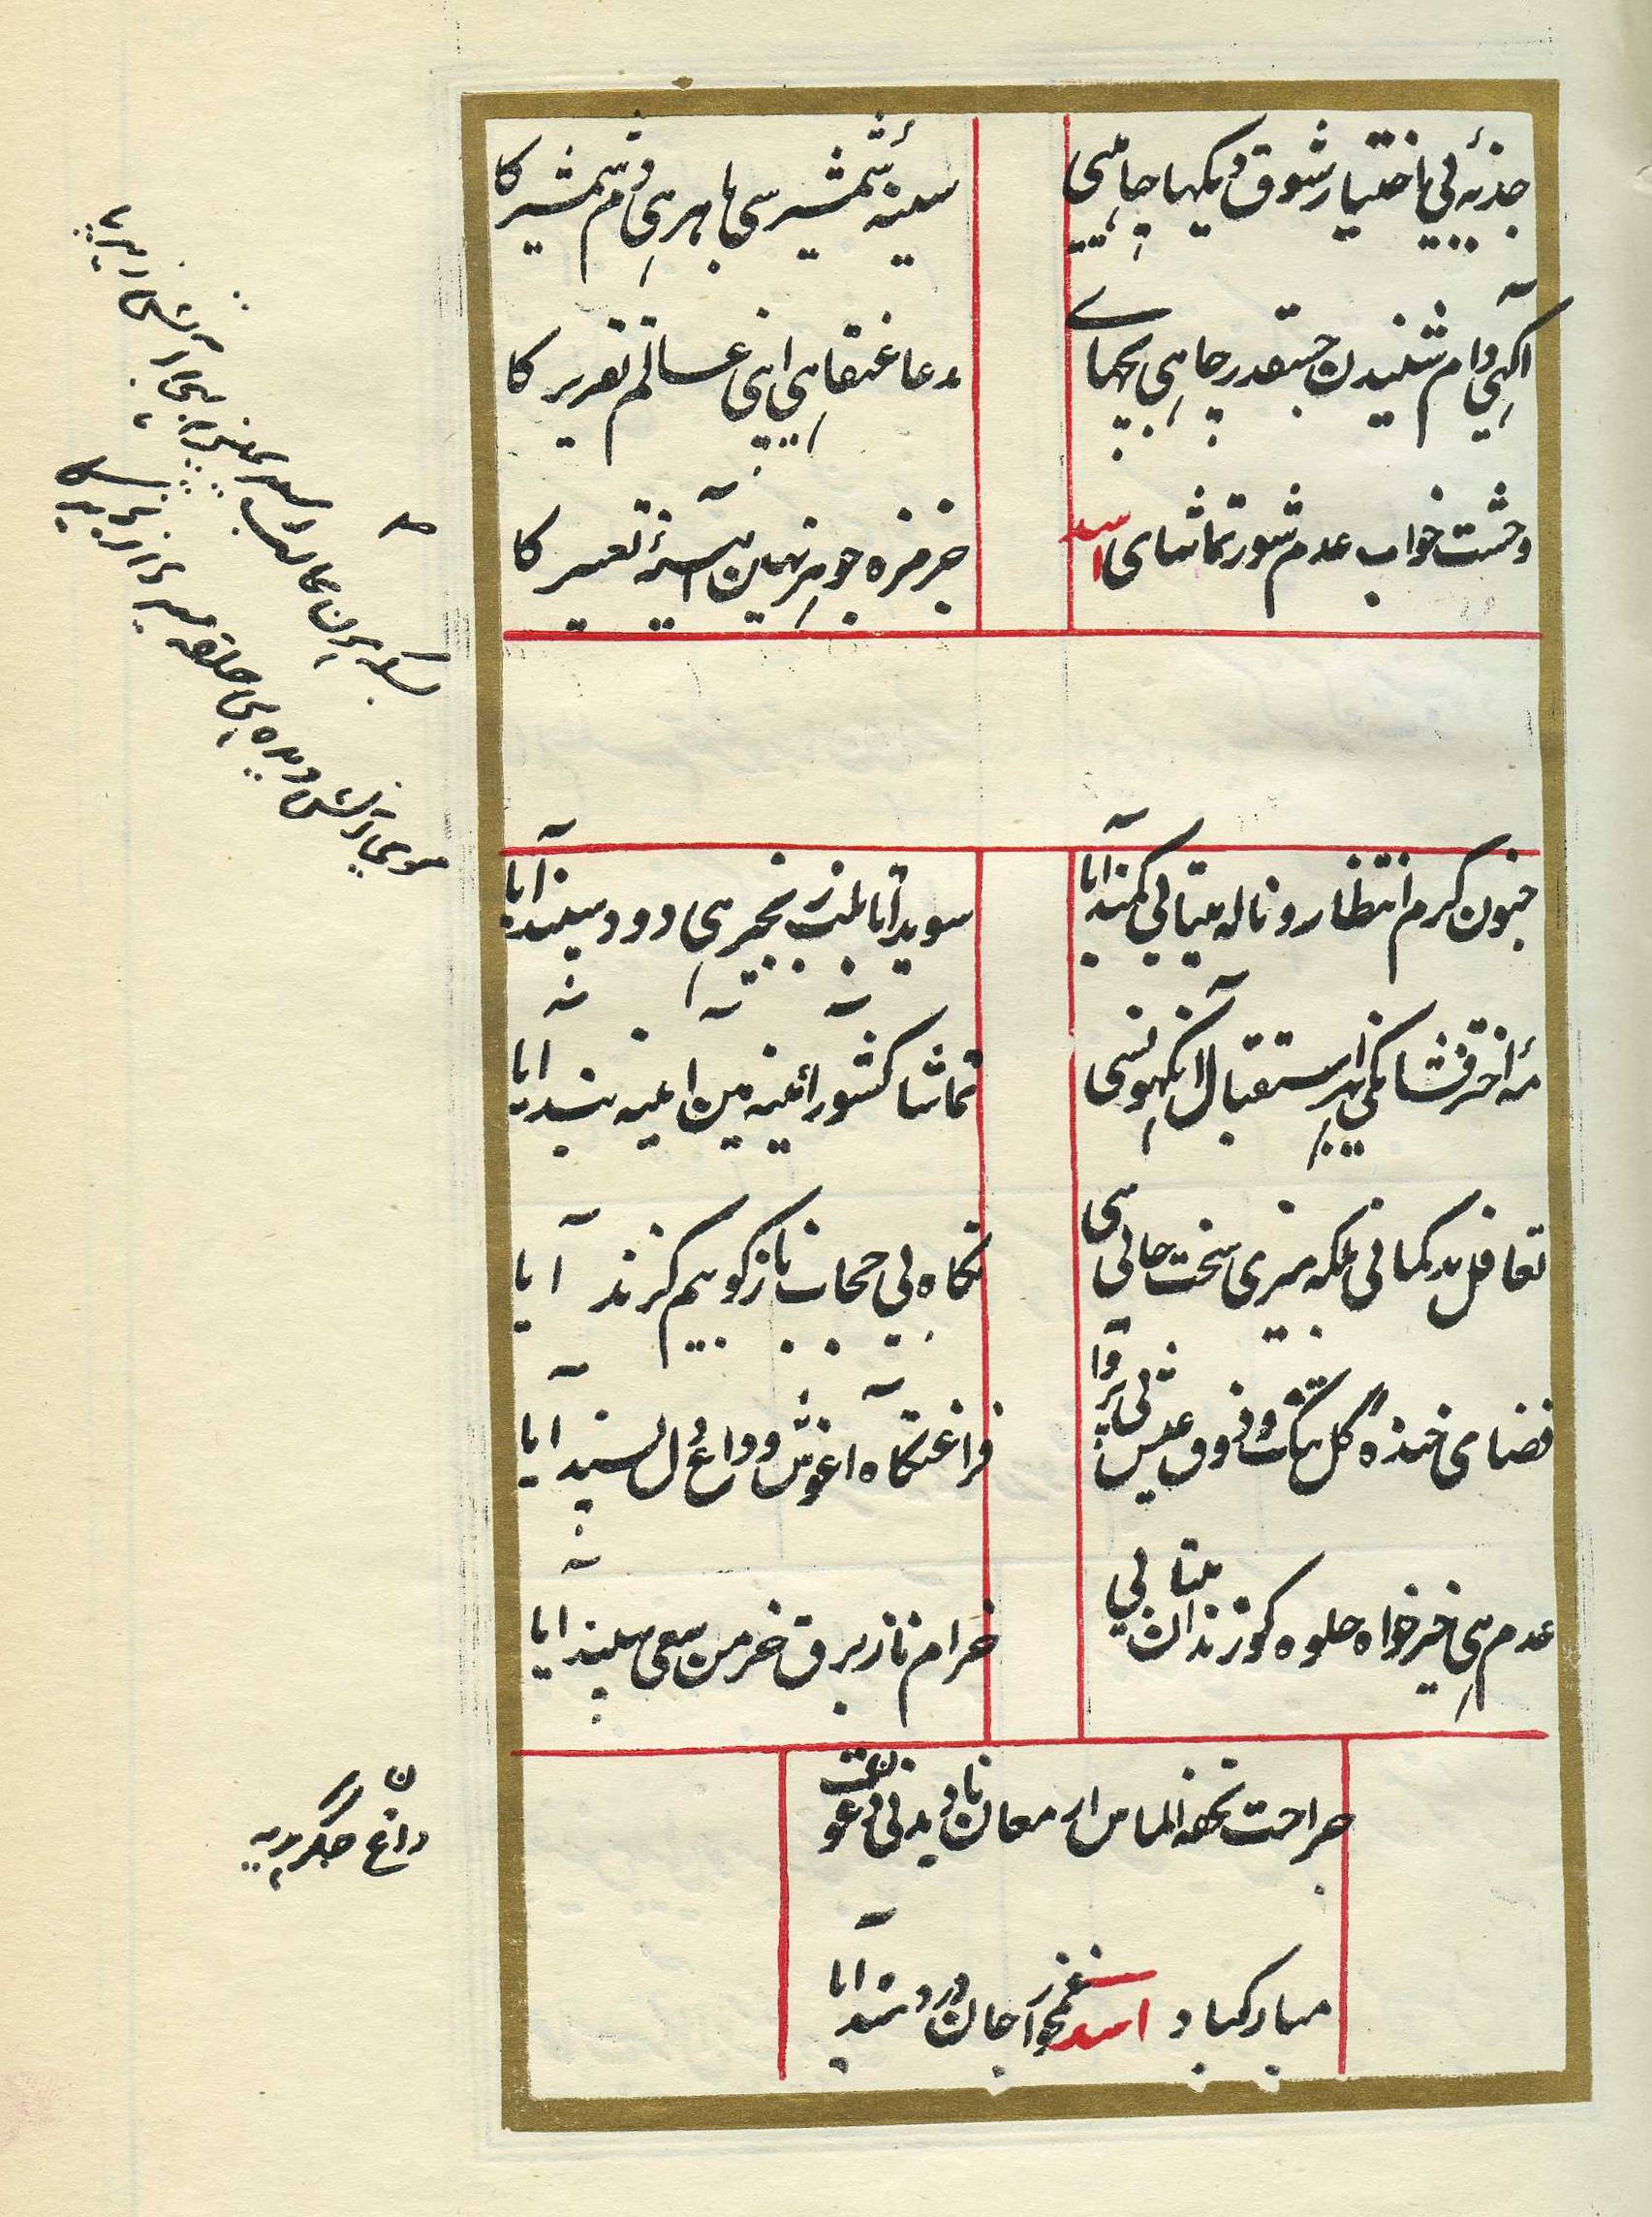 جذبۂ بی اختیار شوق دیکہا چاہیی
سینۂ شمشیر سی باہر ہی دم شمشیر کا
آگہی دام شنیدن جسقدر چاہی بچہای
مدعا عنقا ہی اپنی عالم تقریر کا
وحشت خواب عدم شور تماشا ہی اسد
جز مزہ جوہر نہین آئینۂ تعبیر کا
جنون گرم انتظار و نالہ بیتابی کمند آیا
سویدا تا بلب زنجیر سی دود سپند آیا
مہ اختر فشان کی بہر استقبال آنکہونسی
تماشا کشور آئینہ مین آئینہ بند آیا
تغافل بدگمانی بلکہ میری سخت جانی سی
نگاہ بی حجاب ناز کو بیم گزند آیا
فضای خندۂ گل تنگ و ذوق عیش بی پروا
فراغتگاہ آغوش وداع دل پسند آیا
عدم ہی خیر خواہ جلوہ کو زندان بیتابی
خرام ناز برق خرمن سعی سپند آیا
جراحت تحفہ الماس ارمغان نادیدنی دعوت
مبارکباد اسد غمخوار جان دردمند آیا
بسکہ ہون غالب اسیری مین بہی آتش زیر پا
موی آتش دیدہ ہی حلقہ میری زنجیر کا
ن
داغ جگر ہدیہ